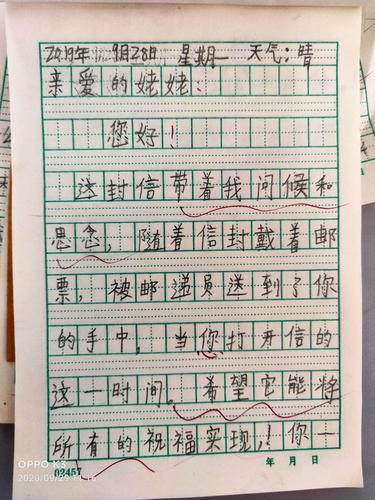 2019年 9月28日 星期一 天气：晴
亲爱的姥姥：
您好！
送封信带着我问候和
思念，随着信封戴着邮
票，被邮递员送到了你
的手中，当你打开信的
这一时间。希望它能将
所有的祝福实现,！你一
02457 年 月 日
OPPO K3
2020/09/29 11:16